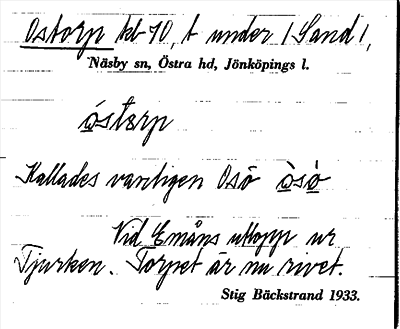 Ostorp kb 70, t under 1 Sand 1,
Näsby sn, Östra hd, Jönköpings l.
óstorp
Kallades vanligen Osö òsó
Vid Emåns utlopp ur
Tjurken. Torpet är nu rivet.
Stig Bäckstrand 1933.